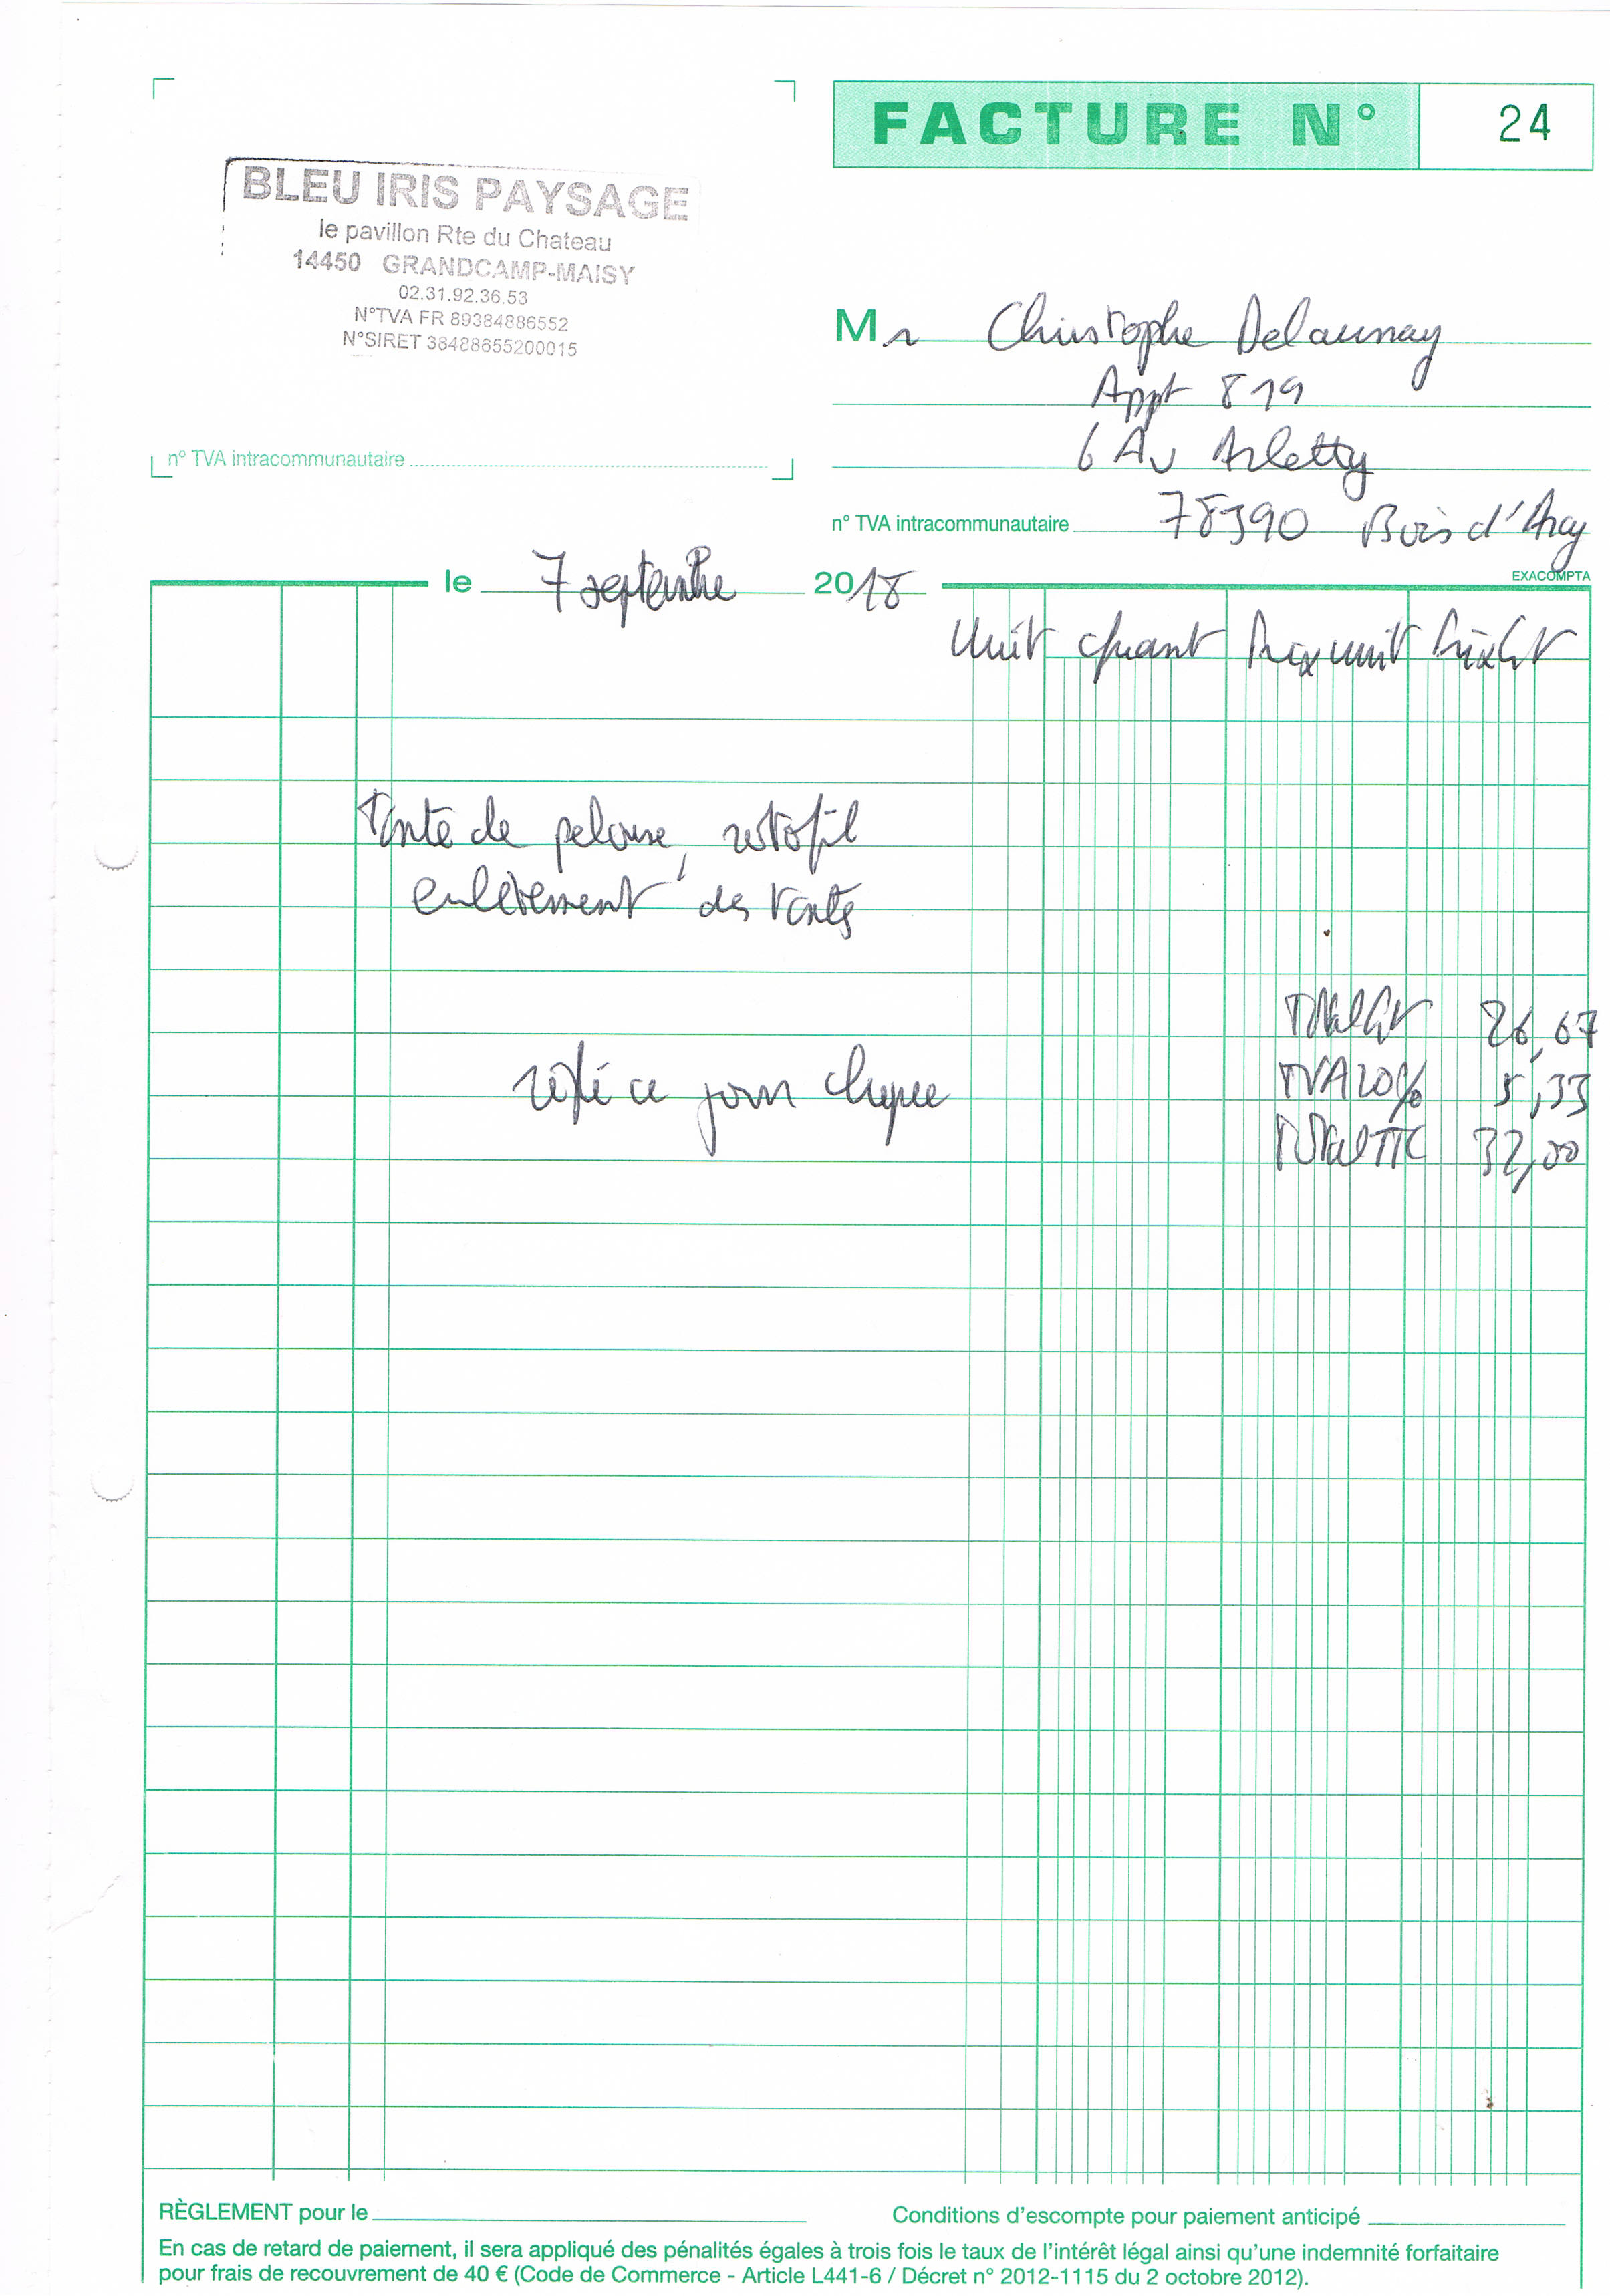 FACTURE N° 24
BLEU IRIS PAYSAGE
le pavillon Rte du Chateau
14450 GRANDCAMP-MAISY
02.31.92.36.53
N°TVA FR 89384886552
N°SIRET 38488655200015
n° TVA intracommunautaire
Mr Christophe Delaunay
Appt 819
6 Av Arletty
n° TVA intracommunautaire 78390 Bois d'Arcy
EXACOMPTA
le 7 septembre 2018
Unit quant Prix unit Prix HT
Tonte de pelouse, rotofil
enlèvement des tontes
Total HT 26,67
TVA 20% 5,33
réglé ce jour chèque
Total TTC 32,00
RÈGLEMENT pour le
Conditions d'escompte pour paiement anticipé
En cas de retard de paiement, il sera appliqué des pénalités égales à trois fois le taux de l'intérêt légal ainsi qu'une indemnité forfaitaire
pour frais de recouvrement de 40 € (Code de Commerce - Article L441-6 / Décret n° 2012-1115 du 2 octobre 2012).